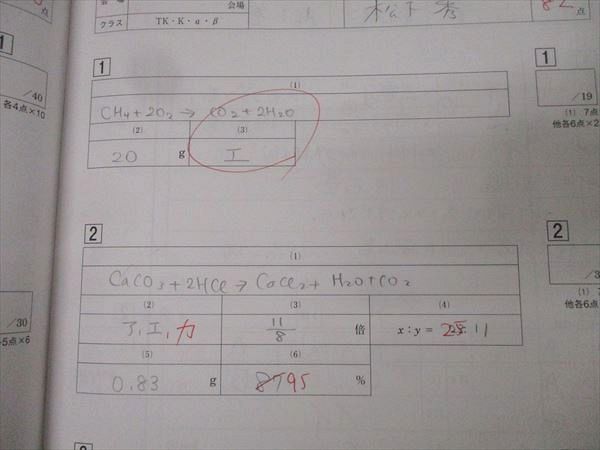 会場
点
クラス
TK・K・α・β
松下 秀
82
点
1
/40
各4点×10
1
(1)
CH4+2O2 → CO2+2H2O
(2)
(3)
20 g
エ
1
/19
(1) 7点
他各6点×2
2
(1)
CaCO3+2HCl → CaCl2+ H2O+CO2
(2)
(3)
(4)
ア,エ,カ
11/8 倍
x:y= 25:11
(5)
(6)
0.83 g
87 95 %
/30
5点×6
2
(1)
他各6点